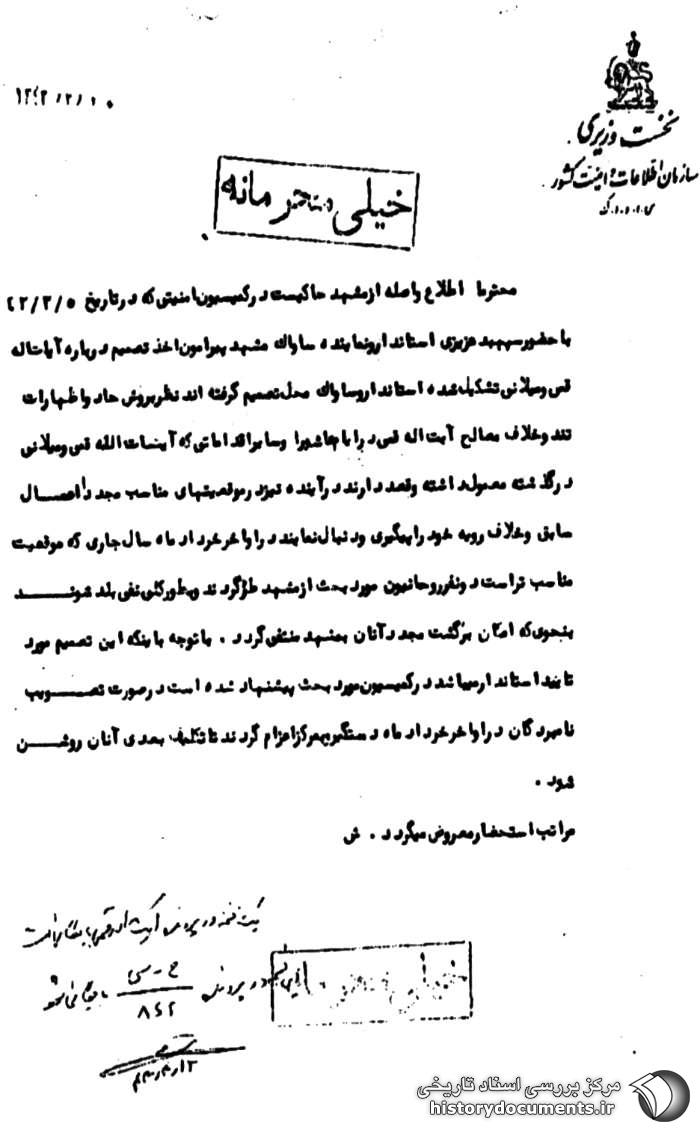 نخست وزیری
سازمان اطلاعات و امنیت کشور
س.ا.و.ا.ک
خیلی محرمانه
محترما اطلاع واصله از مشهد حاکیست در کمیسیون امنیتی که در تاریخ ۴۲/۳/۵
با حضور سپهبد عزیزی استاندار و نماینده ساواک مشهد پیرامون اخذ تصمیم درباره آیات اله
قمی و میلانی تشکیل شده استاندار و ساواک محل تصمیم گرفته اند نظر بروش حاد و اظهارات
تند و خلاف مصالح آیت اله قمی در ایام عاشورا و سایر اقداماتی که آیتیات الله قمی و میلانی
در گذشته معمول داشته و قصد دارند در آینده نیز در موقعیتهای مناسب مجددا اعمال
سابق و خلاف رویه خود را پیگیری و دنبال نمایند در اواخر خرداد ماه سال جاری که موقعیت
مناسب تر است دو نفر روحانیون مورد بحث از مشهد طرد گردند و بطور کلی نفی بلد شوند
بنحوی که امکان برگشت مجدد آنان بمشهد منتفی گردد . با توجه باینکه این تصمیم مورد
تایید استاندار میباشد در کمیسیون مورد بحث پیشنهاد شده است در صورت تصویب
نامبردگان در اواخر خرداد ماه دستگیر و بمرکز اعزام گردند تا تکلیف بعدی آنان روشن
شود .
مراتب استحضارا معروض میگردد . ش
در پرونده
۸۴۲
خیلی محرمانه
مرکز بررسی اسناد تاریخی
historydocuments.ir